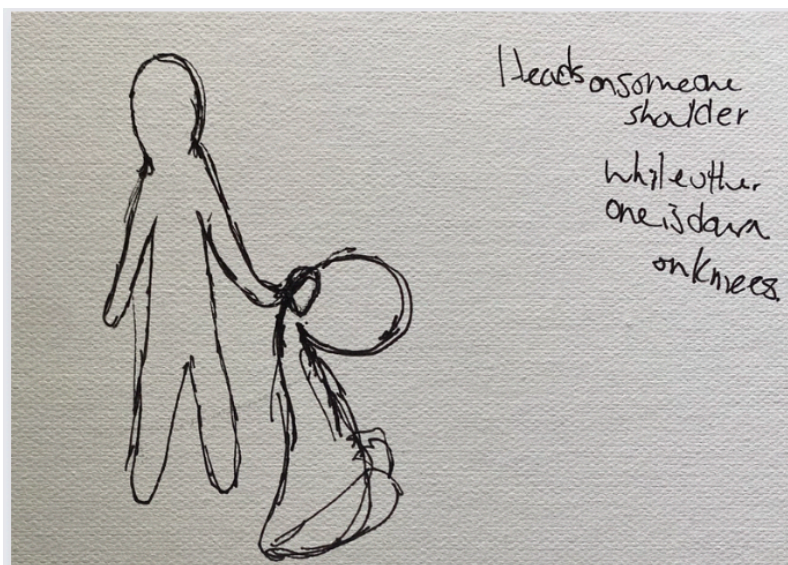 Heads onsomeone
shoulder
while other
one is down
on knees.